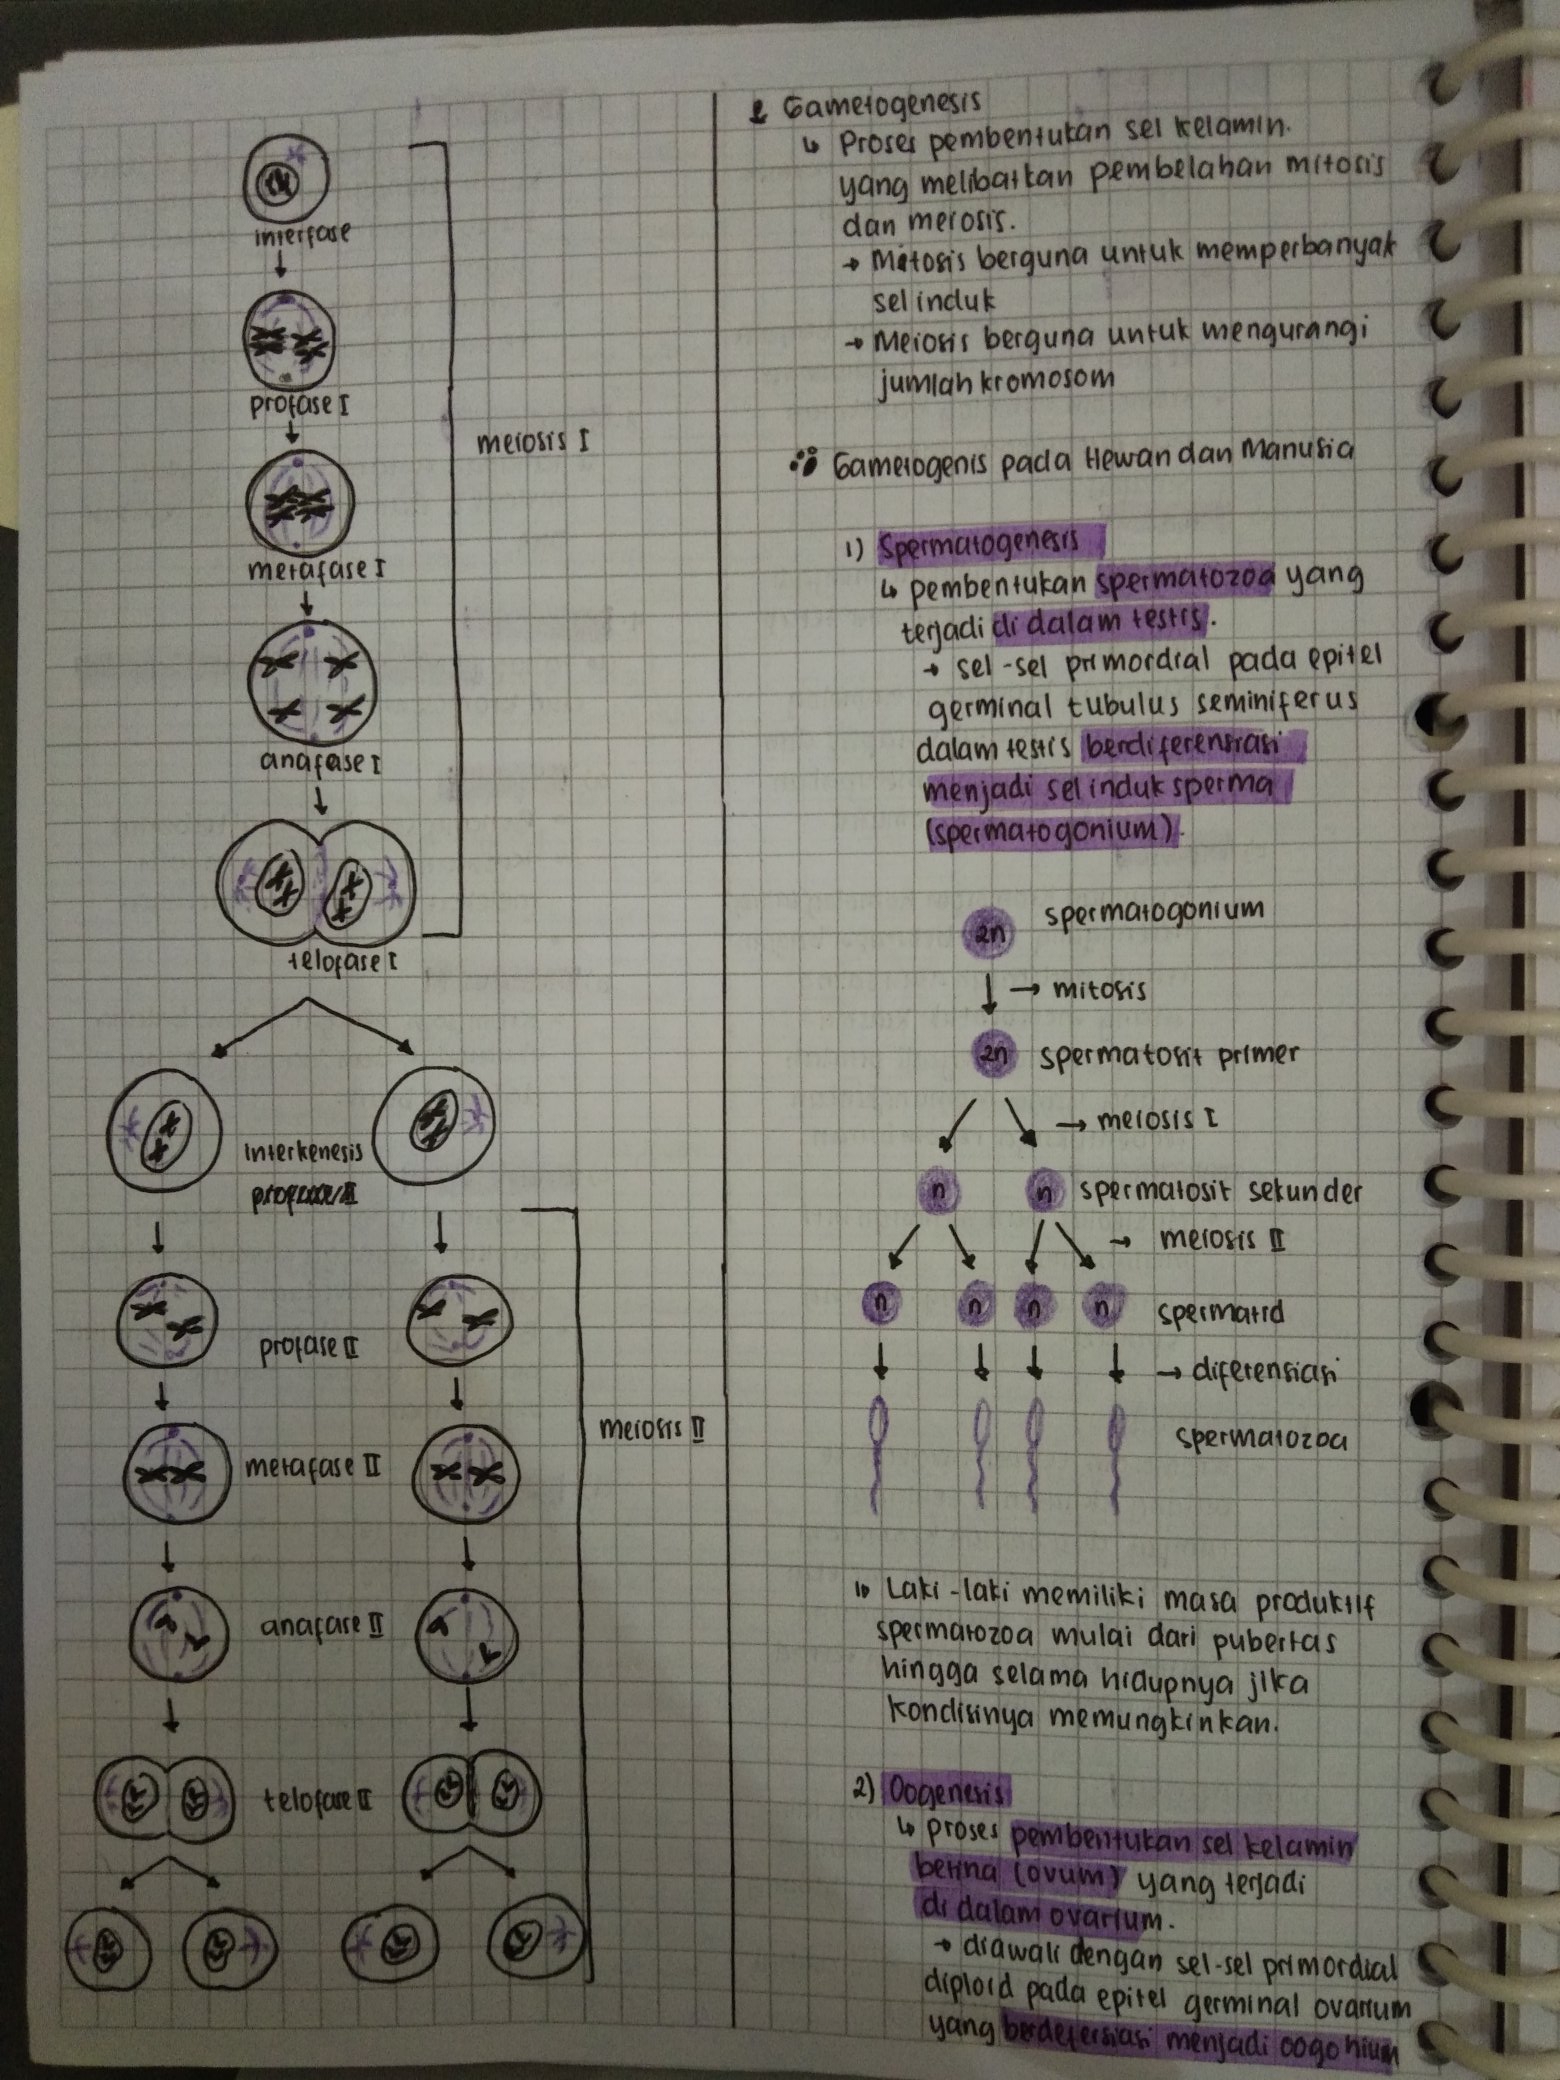 interfase
profase I
metafase I
anafase I
telofase I
meiosis I
interkenesis
profase II
metafase II
anafase II
telofase II
meiosis II
Gametogenesis
↳ Proses pembentukan sel kelamin.
yang melibatkan pembelahan mitosis
dan meiosis.
→ Mitosis berguna untuk memperbanyak
sel induk
→ Meiosis berguna untuk mengurangi
jumlah kromosom
Gametogenis pada Hewan dan Manusia
1) Spermatogenesis
↳ pembentukan spermatozoa yang
terjadi di dalam testis.
→ sel-sel primordial pada epitel
germinal tubulus seminiferus
dalam testis berdiferensiasi
menjadi sel induk sperma
(spermatogonium).
2n spermatogonium
→ mitosis
2n spermatosit primer
→ meiosis I
n n spermatosit sekunder
→ meiosis II
n n n n spermatid
→ diferensiasi
spermatozoa
Laki-laki memiliki masa produktif
spermatozoa mulai dari pubertas
hingga selama hidupnya jika
kondisinya memungkinkan.
2) Oogenesis
↳ proses pembentukan sel kelamin
betina (ovum) yang terjadi
di dalam ovarium.
→ diawali dengan sel-sel primordial
diploid pada epitel germinal ovarium
yang berdefersiasi menjadi oogonium